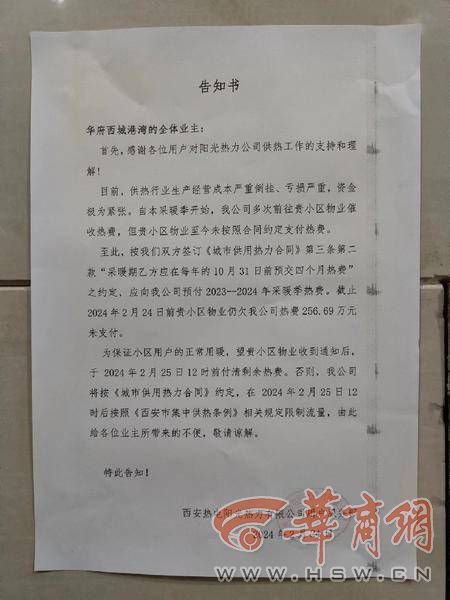 告知书
华府西城港湾的全体业主：
首先，感谢各位用户对阳光热力公司供热工作的支持和理
解！
目前，供热行业生产经营成本严重倒挂、亏损严重，资金
极为紧张。自本采暖季开始，我公司多次前往贵小区物业催
收热费，但贵小区物业至今未按照合同约定支付热费。
至此，按我们双方签订《城市供用热力合同》第三条第二
款“采暖期乙方应在每年的10月31日前预交四个月热费”
之约定，应向我公司预付2023—2024年采暖季热费。截止
2024年2月24日前贵小区物业仍欠我公司热费256.69万元
未支付。
为保证小区用户的正常用暖，望贵小区物业收到通知后，
于2024年2月25日12时前付清剩余热费。否则，我公司
将按《城市供用热力合同》约定，在2024年2月25日12
时后按照《西安市集中供热条例》相关规定限制流量，由此
给各位业主所带来的不便，敬请谅解。
特此告知！
西安热电阳光热力有限公司
2024年2月
华商网
WWW.HSW.CN